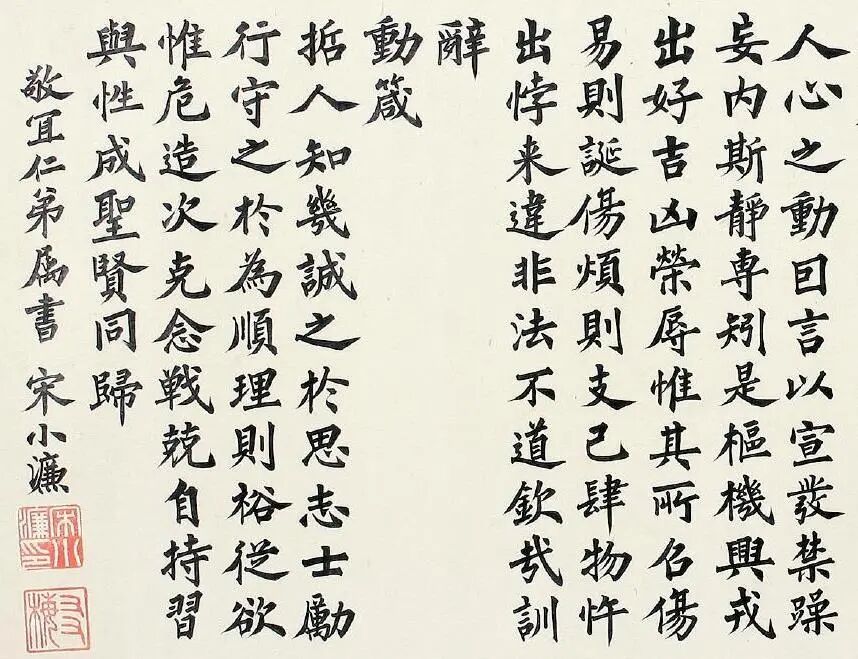 人心之動囙言以宣發禁躁
妄内斯靜專矧是樞機興戎
出好吉凶榮辱惟其所召傷
易則誕傷煩則支己肆物忤
出悖来違非法不道欽哉訓
辭
動箴
哲人知幾誠之於思志士勵
行守之於為順理則裕從欲
惟危造次克念戰兢自持習
與性成聖賢同歸
敬宜仁弟属書 宋小濂
宋小濂印
友梅